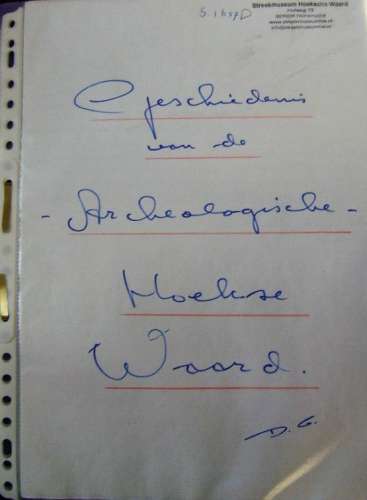 Streekmuseum Hoeksche Waard
Geschiedenis
van de
- Archeologische -
Hoekse
Waard.
D. G.